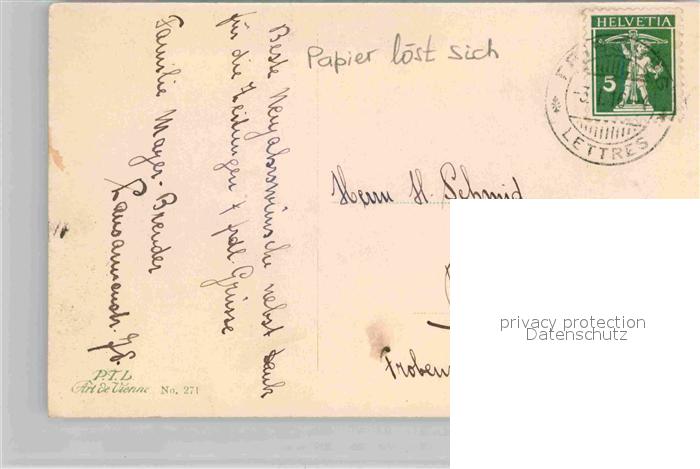 Beste Neujahrswünsche nebst Dank
für die Zeitungen & frdl. Grüsse
Familie Mayer-Brender
Papier löst sich
HELVETIA
5
LETTRES
Herrn H. Schmid
Froben
privacy protection
Datenschutz
P.T.L.
Art de Vienne No. 271